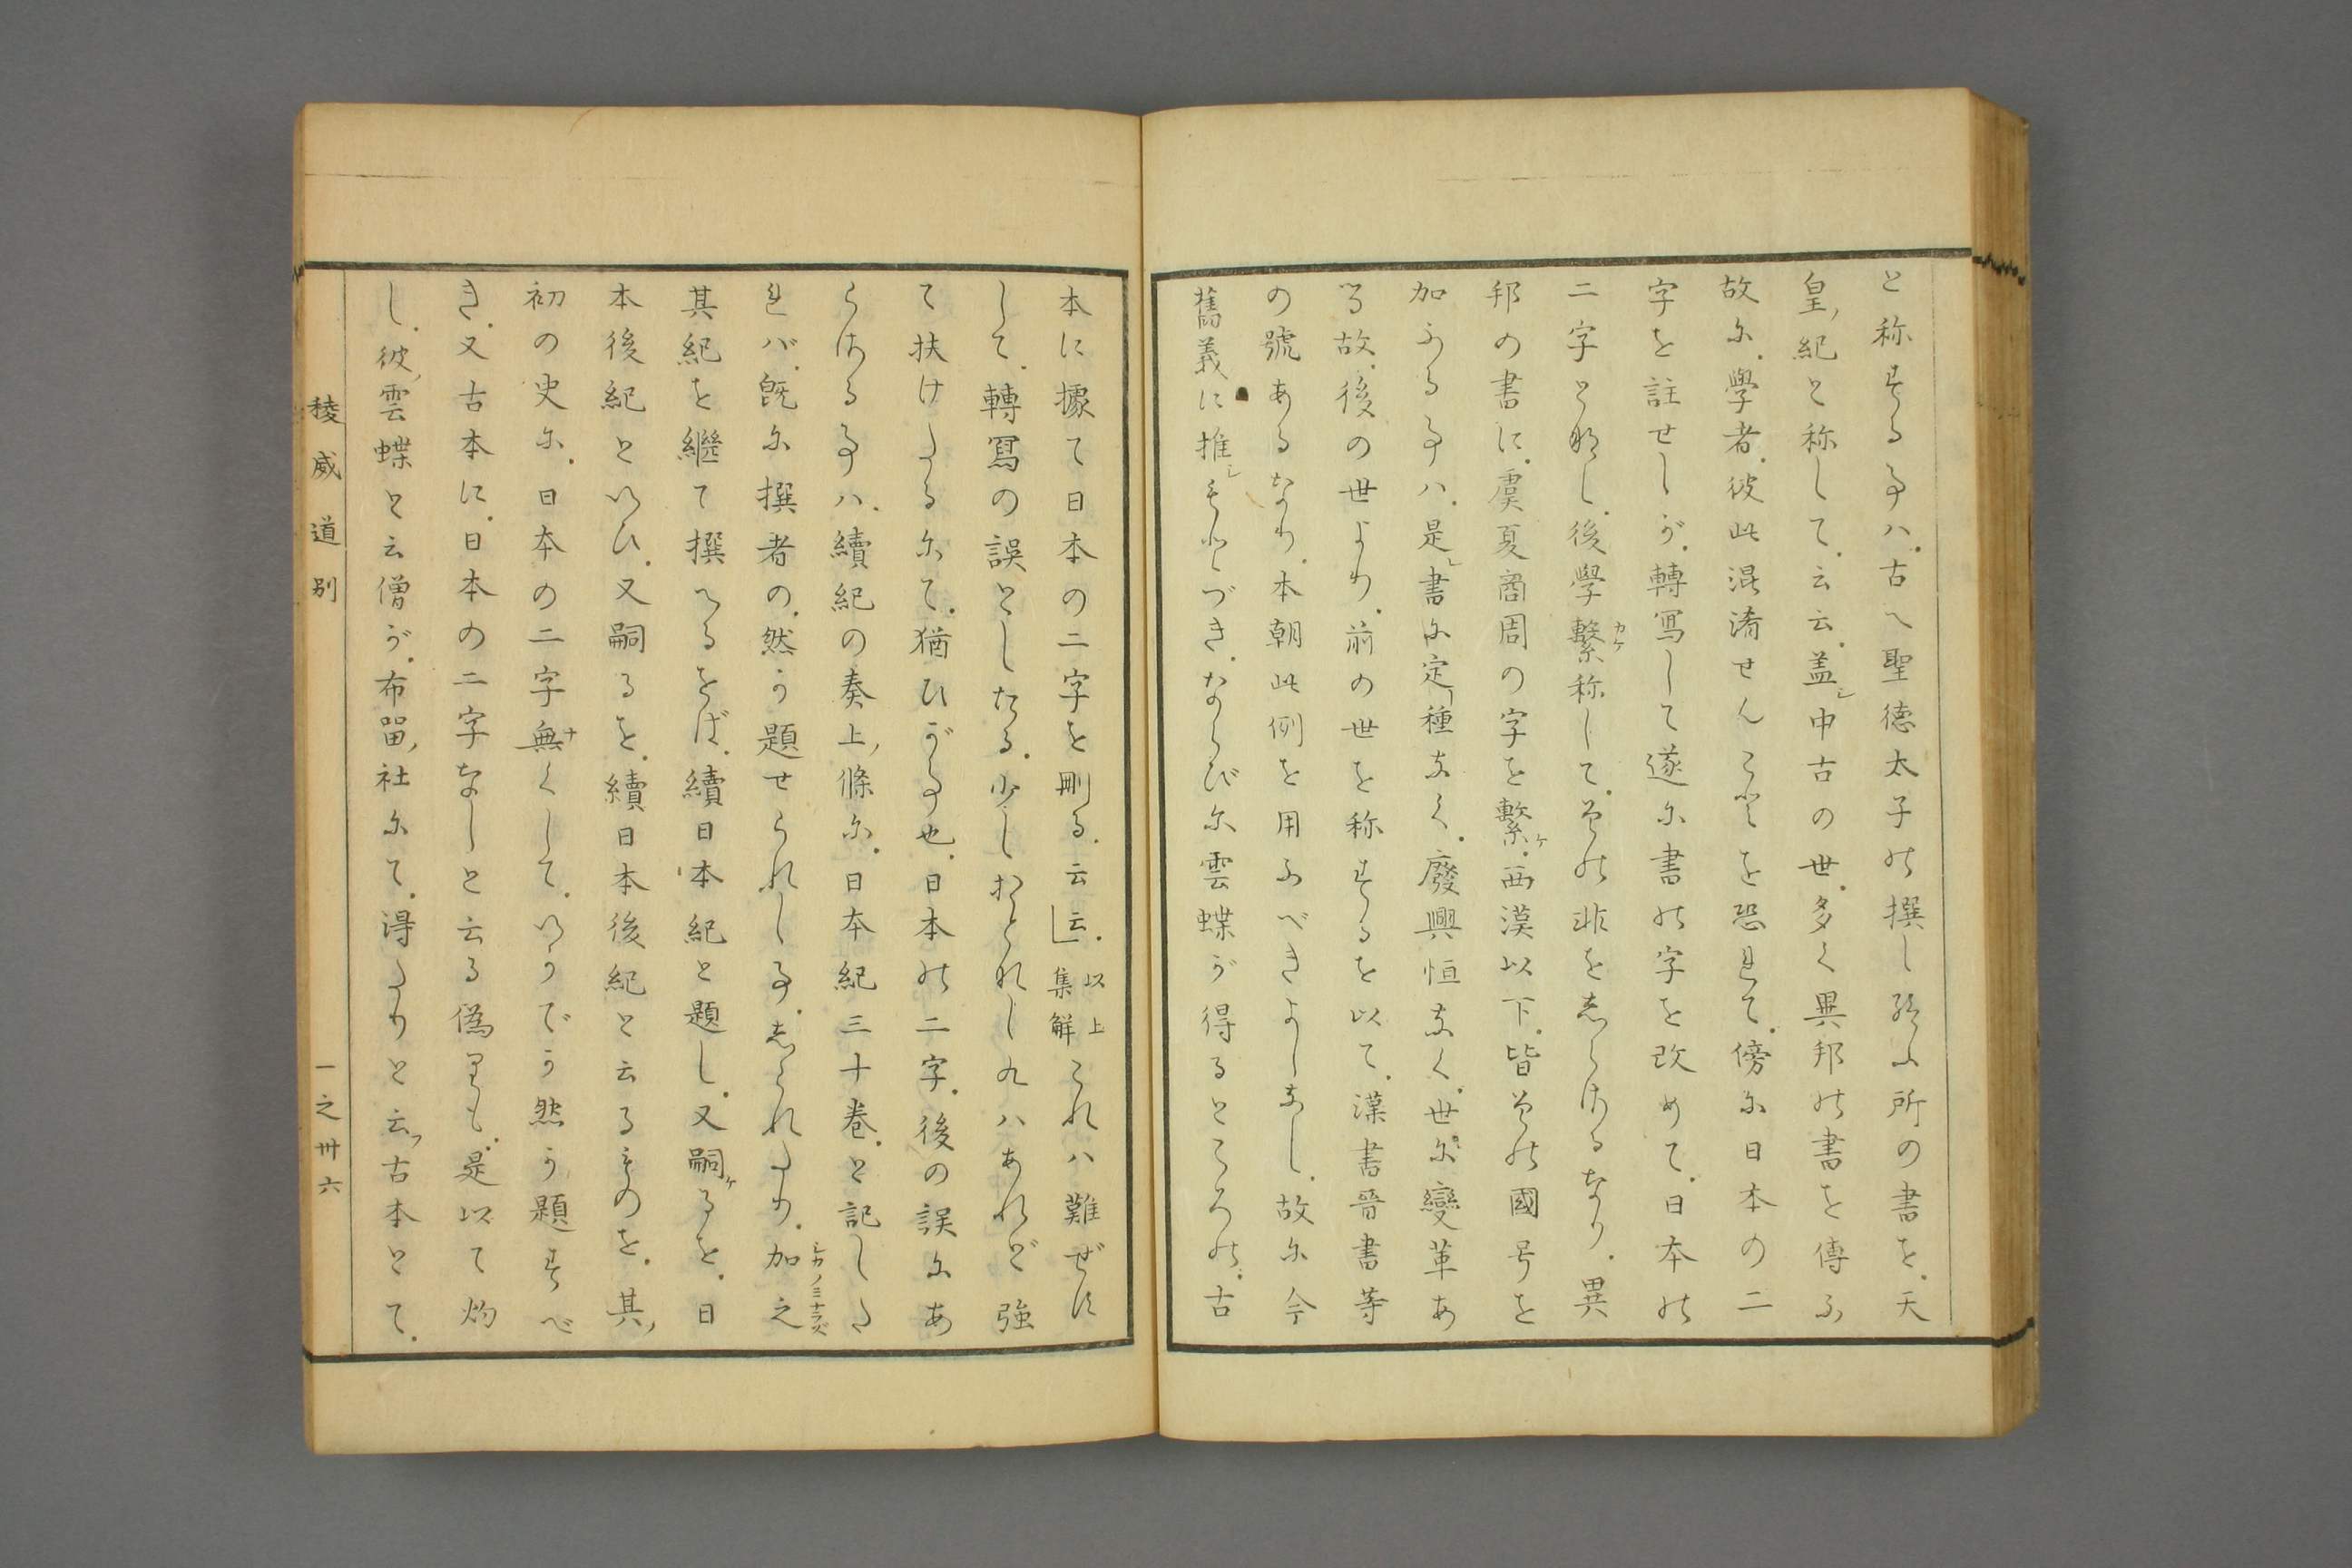 と称する事ハ古へ聖徳太子の撰し給ふ所の書を天
皇紀と称して云云蓋シ中古の世多く異邦の書を傳ふ
故に學者彼此混淆せんことを恐れて傍に日本の二
字を註せしが轉寫して遂に書の字を改めて日本の
二字と為し後學繫カケ称して其の非をしらざるなり異
邦の書に虞夏商周の字を繫ケ西漢以下皆其の國号を
加ふる事ハ是レ書に定種なく廢興恒なく世に變革あ
る故後の世より前の世を称するを以て漢書晉書等
の號あるなり本朝此例を用ふべきよしなし故に今
舊義に推シもとづきならびに雲蝶が得るところの古
本に據て日本の二字を刪る云云」以上集解これハ難ぜず
して轉寫の誤としたる少しおとれし九ハあれど強
て扶けたるにて猶ひが事也日本の二字後の誤にあ
らざる事ハ續紀の奏上條に日本紀三十卷と記した
れバ既に撰者の然か題せられし事しられたり加之シカノミナラズ
其紀を繼て撰へるをば續日本紀と題し又嗣ケるを日
本後紀といひ又嗣るを續日本後紀と云るものを其
初の史に日本の二字無ナくしていかでか然か題すべ
き又古本に日本の二字なしと云る偽りも是以て灼
し彼雲蝶と云僧が布留社にて得たりと云フ古本とて
稜威道別
一之卅六